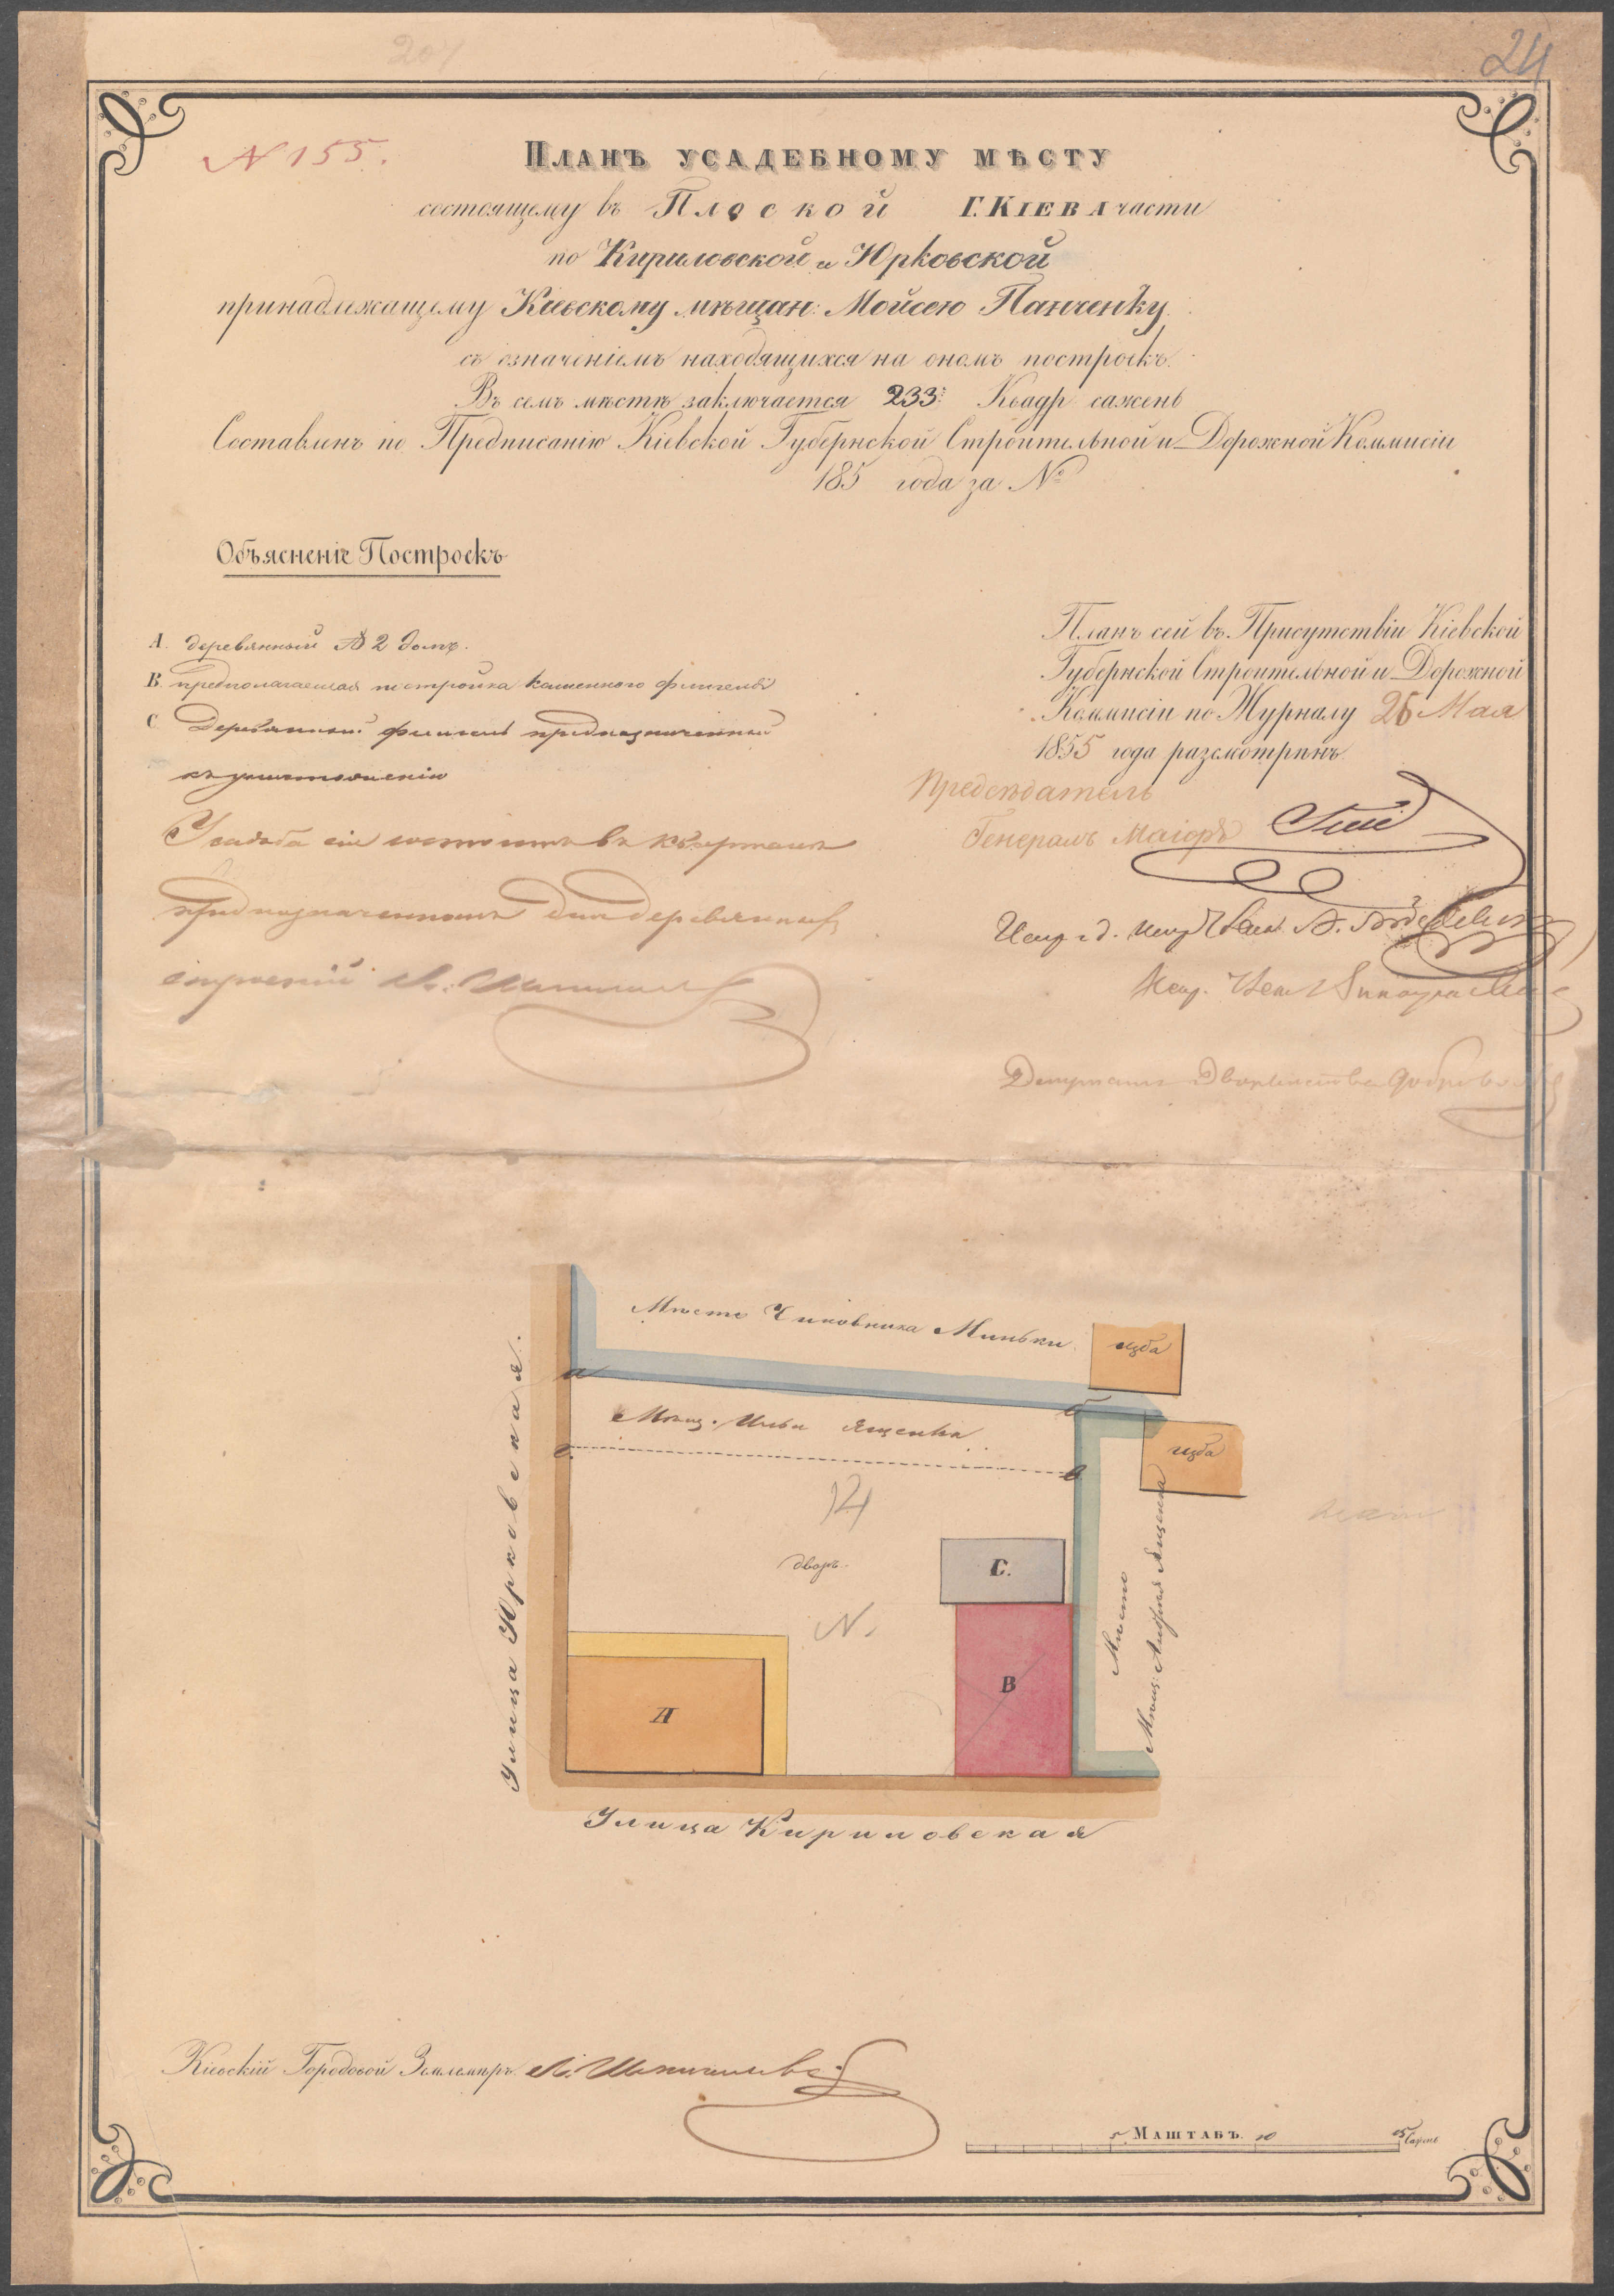 207
24
N 155.
ПЛАНЪ УСАДЕБНОМУ МѢСТУ
состоящему въ Плоской Г. КІЕВА части
по Кириловской и Юрковской
принадлежащему Кіевскому мѣщан: Мойсею Панченку
съ означеніемъ находящихся на ономъ построекъ.
Въ семъ мѣстѣ заключается 233 Квадр сажень
Составленъ по Предписанію Кіевской Губернской Строительной и Дорожной Коммисіи
185 года за №
Объясненіе Построекъ
А. деревянный № 2 домъ.
В. предполагаемая постройка каменного флигеля
С. Деревянный флигель предназначенный
къ уничтоженію
Усадьба сія состоитъ въ кварталѣ
предназначенномъ для деревянныхъ
строеній
Планъ сей въ Присутствіи Кіевской
Губернской Строительной и Дорожной
Коммисіи по Журналу 26 Мая
1855 года разсмотрѣнъ.
Предсѣдатель
Генералъ Маіоръ
Депутатъ Дворянства
Мѣсто Чиновника Миньки.
изба
а
б
Мѣщ. Ильи Ященка
изба
г.
в
14
дворъ.
С.
N.
В
А
Мѣсто
Мѣщ: Андрея Ященка
Улица Юрковская.
Улица Кириловская
Кіевскій Городовой Землемѣръ
5 МАШТАБЪ. 10 15 Сажень